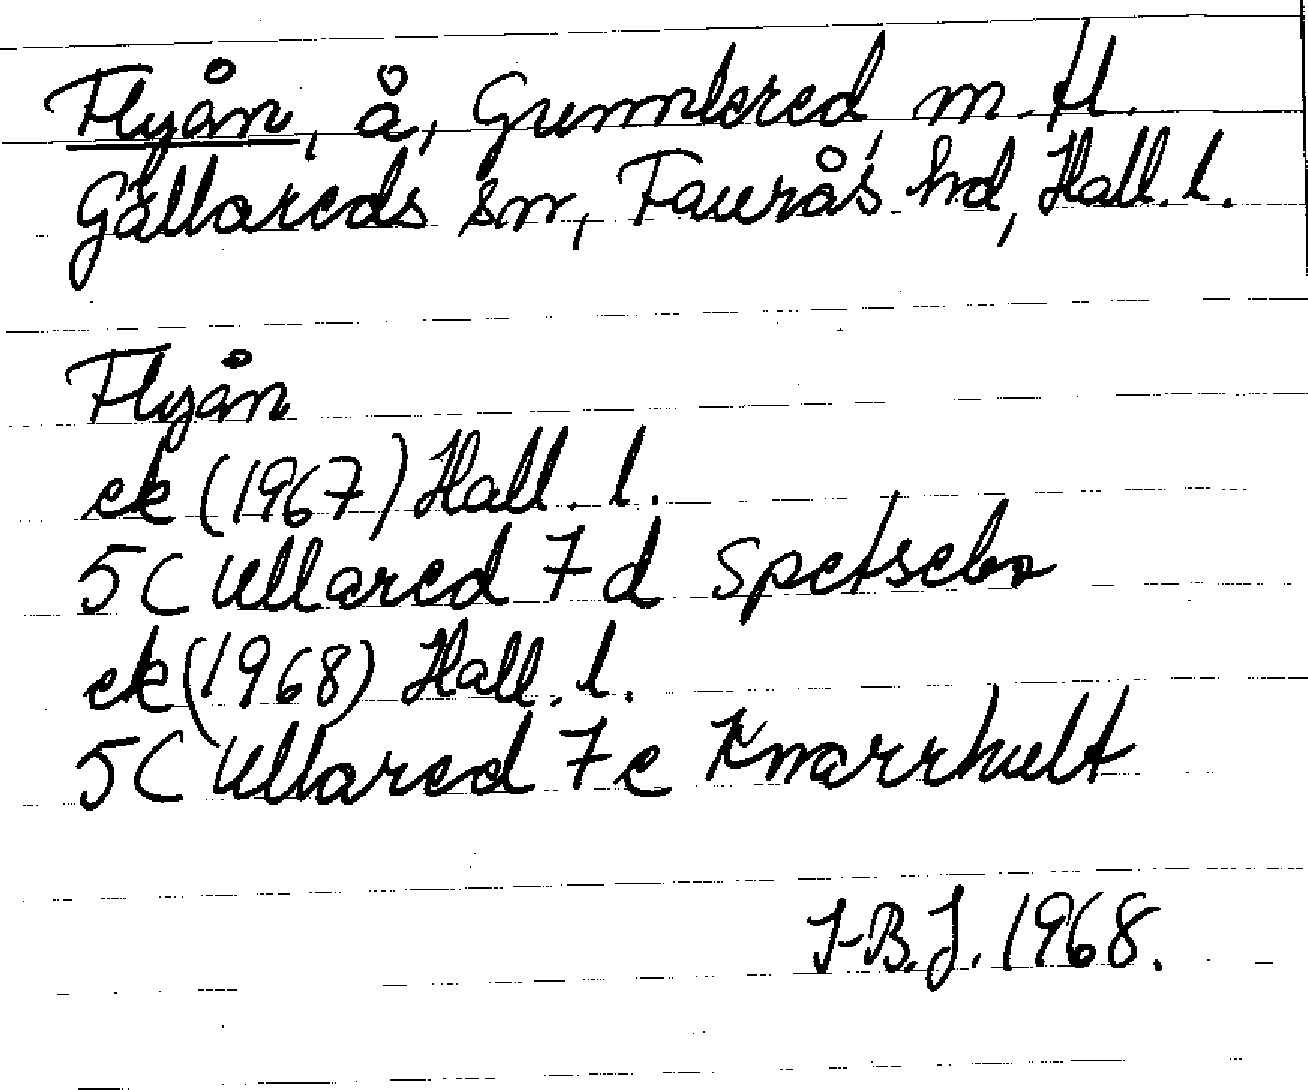 Flyån, å, Gunnlered m. fl.
Gällareds sn, Faurås hd, Hall. l.
Flyån
ek (1967) Hall. l.
5C Ullared 7d Spetsebo
ek (1968) Hall. l.
5C Ullared 7e Knarrhult
I-B.J. 1968.